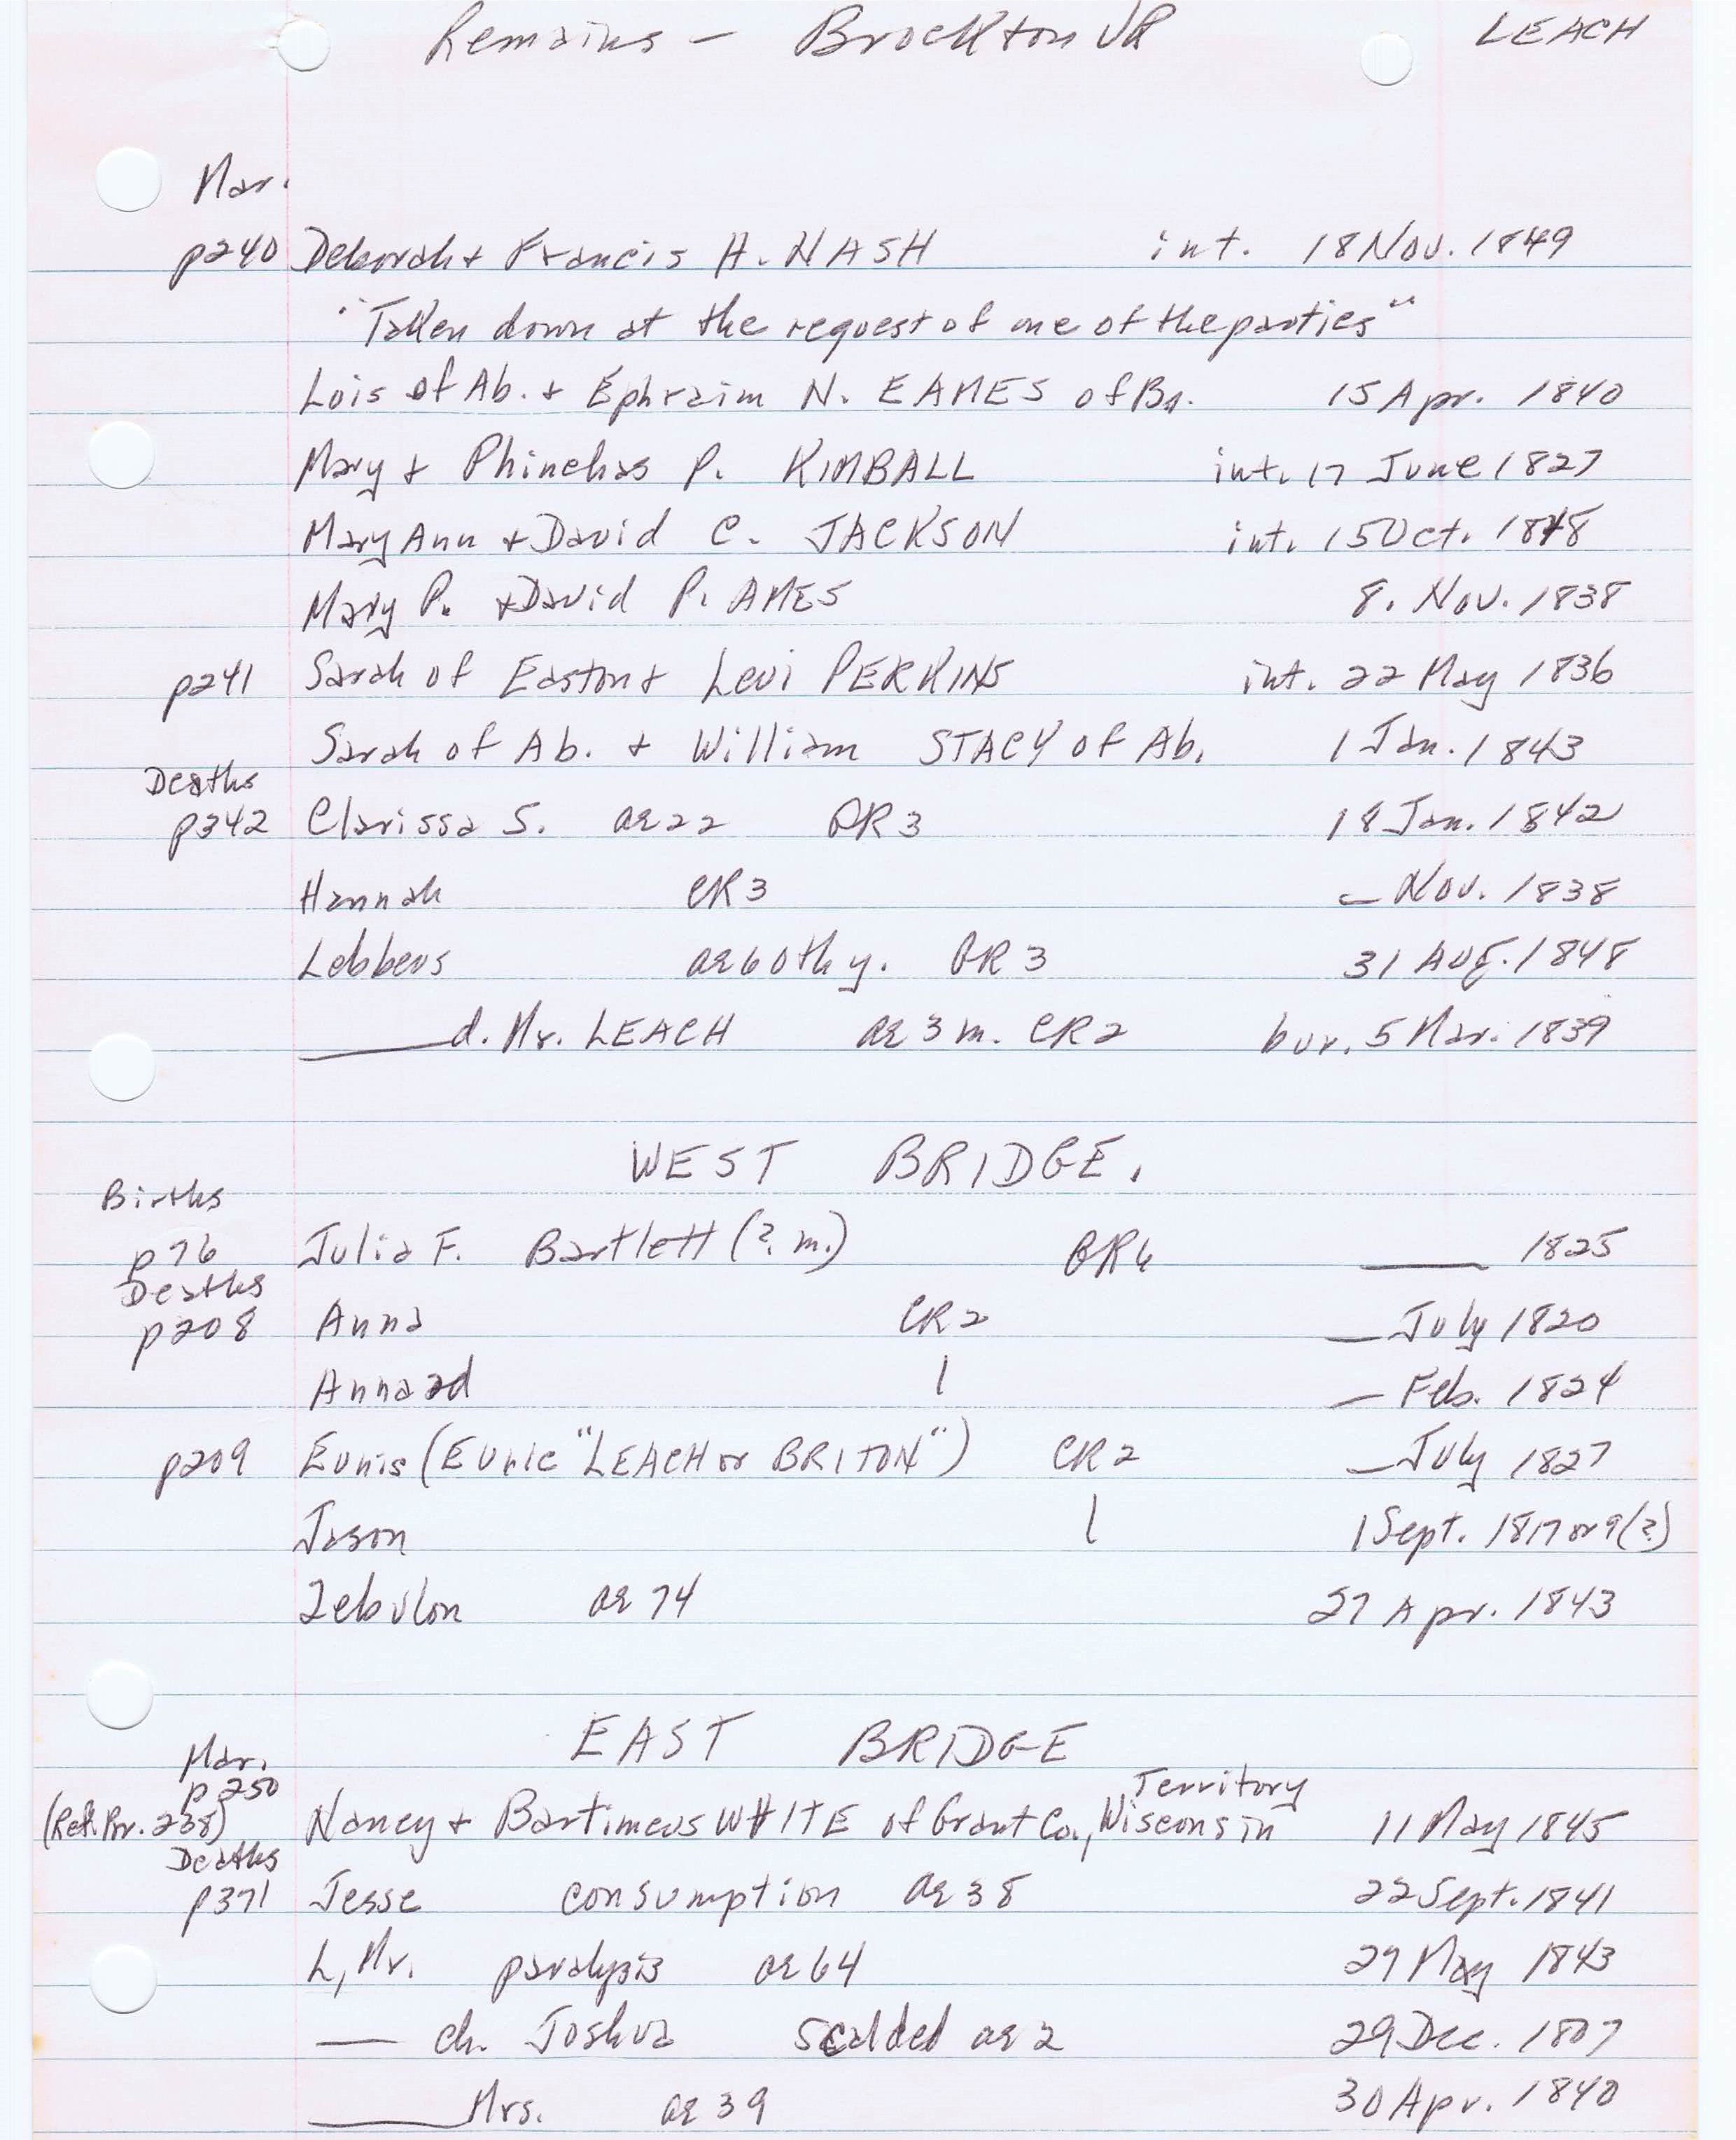 Remains - Brockton VR LEACH
Mar.
p240 Deborah + Francis A. NASH int. 18 Nov. 1849
"Taken down at the request of one of the parties"
Lois of Ab. + Ephraim N. EAMES of Bn. 15 Apr. 1840
Mary + Phinehas P. KIMBALL int. 17 June 1827
Mary Ann + David C. JACKSON int. 15 Oct. 1848
Mary P. + David P. AMES 8. Nov. 1838
p241 Sarah of Easton + Levi PERKINS int. 22 May 1836
Sarah of Ab. + William STACY of Ab. 1 Jan. 1843
Deaths
p342 Clarissa S. ae 22 PR3 18 Jan. 1842
Hannah CR3 — Nov. 1838
Lebbeus ae 60th y. PR3 31 Aug. 1848
____ d. Mr. LEACH ae 3 m. CR2 bur. 5 Mar. 1839
WEST BRIDGE.
Births
p76 Julia F. Bartlett (? m.) GR6 ____ 1825
Deaths
p208 Anna CR2 — July 1820
Anna 2d | — Feb. 1824
p209 Eunis (Eunic "LEACH or BRITON") CR2 — July 1827
Jason | 1 Sept. 1817 or 9 (?)
Zebulon ae 74 27 Apr. 1843
EAST BRIDGE
Mar.
p250 Territory
(Ret. Pr. 238) Nancy + Bartimeus WHITE of Grant Co., Wisconsin 11 May 1845
Deaths
p371 Jesse consumption ae 38 22 Sept. 1841
L, Mr. paralysis ae 64 29 May 1843
— ch. Joshua scalded ae 2 29 Dec. 1807
____ Mrs. ae 39 30 Apr. 1840